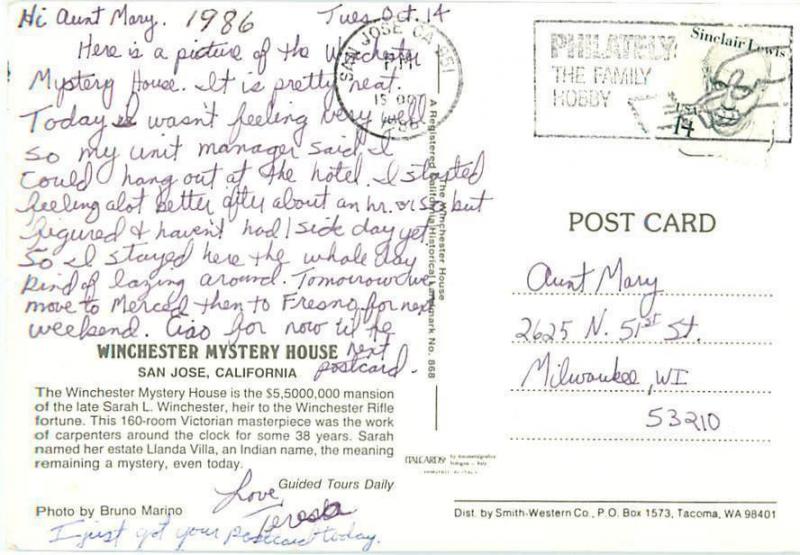 Hi Aunt Mary. 1986 Tues Oct. 14
Here is a picture of the Winchester
Mystery House. It is pretty neat.
Today I wasn't feeling very well
so my unit manager said I
could hang out at the hotel. I started
feeling alot better after about an hr. or so but
figured I haven't had 1 sick day yet.
So I stayed here the whole day
kind of lazing around. Tomorrow we
move to Merced then to Fresno for next
weekend. Ciao for now til the
next
postcard.
WINCHESTER MYSTERY HOUSE
SAN JOSE, CALIFORNIA
The Winchester Mystery House is the $5,5000,000 mansion
of the late Sarah L. Winchester, heir to the Winchester Rifle
fortune. This 160-room Victorian masterpiece was the work
of carpenters around the clock for some 38 years. Sarah
named her estate Llanda Villa, an Indian name, the meaning
remaining a mystery, even today.
Guided Tours Daily
Love,
Teresa
Photo by Bruno Marino
I just got your postcard today.
The Winchester House
A Registered California Historical Landmark No. 868
ITALCARDS
SAN JOSE CA 951
PM
15 OCT
1986
PHILATELY:
THE FAMILY
HOBBY
Sinclair Lewis
USA
14
POST CARD
Aunt Mary
2625 N. 51st St.
Milwaukee, WI
53210
Dist. by Smith-Western Co., P.O. Box 1573, Tacoma, WA 98401